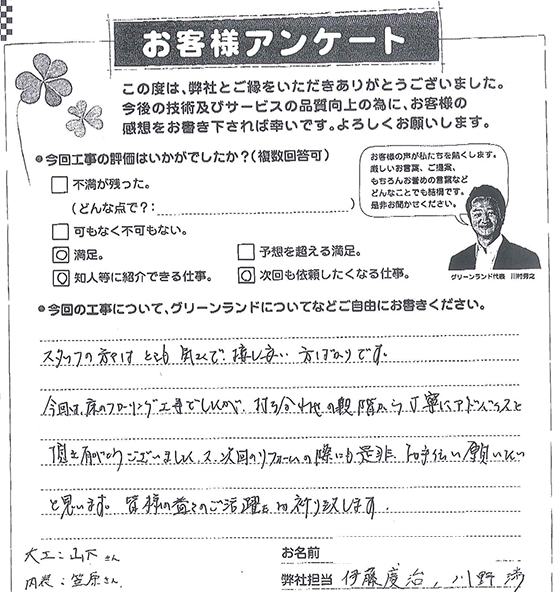 お客様アンケート
この度は、弊社とご縁をいただきありがとうございました。
今後の技術及びサービスの品質向上の為に、お客様の
感想をお書き下されば幸いです。よろしくお願いします。
●今回工事の評価はいかがでしたか？(複数回答可)
不満が残った。
(どんな点で？: )
可もなく不可もない。
満足。
予想を超える満足。
知人等に紹介できる仕事。
次回も依頼したくなる仕事。
お客様の声が私たちを動くします。
厳しいお言葉、ご提案、
もちろんお誉めの言葉など
どんなことでも結構です。
是非お聞かせください。
グリーンランド代表 川村
●今回の工事について、グリーンランドについてなどご自由にお書きください。
スタッフの方々は とても 気さくで、接し易い 方ばかりです。
今回は、床のフローリング工事でしたが、打ち合わせの段階から丁寧にアドバイスを
頂き有がとうございました。又、次回のリフォームの際にも是非、お手伝い願いたい
と思います。皆様の益々のご活躍をお祈り致します。
大工:山下さん
内装:笠原さん
お名前
弊社担当 伊藤慶治、川野